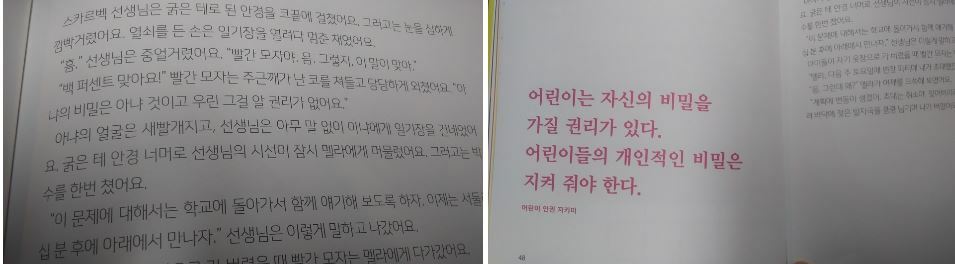 스카르벡 선생님은 굵은 테로 된 안경을 코끝에 걸쳤어요. 그러고는 눈을 심하게
깜박거렸어요. 열쇠를 든 손은 일기장을 열려다 멈춘 채였어요.
"흠." 선생님은 중얼거렸어요. "빨간 모자야. 음. 그렇지. 이 말이 맞아."
"백 퍼센트 맞아요!" 빨간 모자는 주근깨가 난 코를 쳐들고 당당하게 외쳤어요. "아
냐의 비밀은 아냐 것이고 우린 그걸 알 권리가 없어요."
아냐의 얼굴은 새빨개지고, 선생님은 아무 말 없이 아냐에게 일기장을 건네었어
요. 굵은 테 안경 너머로 선생님의 시선이 잠시 멜라에게 머물렀어요. 그러고는 박
수를 한번 쳤어요.
"이 문제에 대해서는 학교에 돌아가서 함께 얘기해 보도록 하자. 이제는 서둘
십 분 후에 아래에서 만나자." 선생님은 이렇게 말하고 나갔어요.
버렸을 때 빨간 모자는 멜라에게 다가갔어요.
어린이는 자신의 비밀을
가질 권리가 있다.
어린이들의 개인적인 비밀은
지켜 줘야 한다.
어린이 인권 지키미
48
요. 굵은 테 안경 너머로 선생님의 시선이 잠시
수를 한번 쳤어요.
"이 문제에 대해서는 학교에 돌아가서 함께 얘기해
십 분 후에 아래에서 만나자." 선생님은 이렇게 말하고